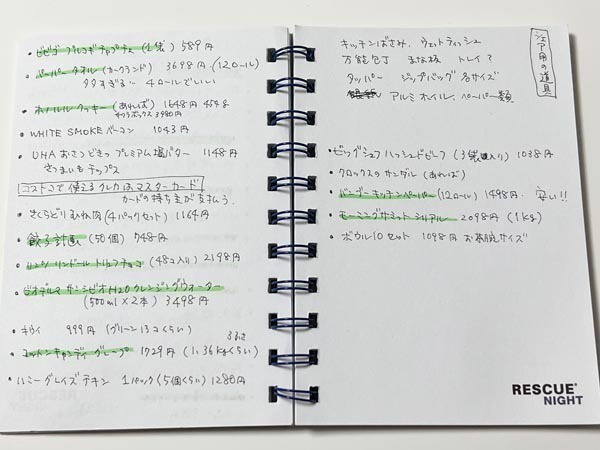 ・ビビゴ プルコギチャプチェ (1袋) 589円
・ペーパータオル (カークランド) 3698円 (12ロール)
タタすぎる… 4ロールでいい
・ホノルルクッキー (あれば) 1648円
3980円
・WHITE SMOKE ベーコン 1043円
・UHA おさつどきっ プレミアム塩バター 1148円
さつまいもチップス
コストコで使えるクレカはマスターカード
カードの持ち主が支払う。
・さくらどりむね肉 (4パックセット) 1164円
・餃子計画 (50個) 748円
・リンツ リンドール トリュフチョコ (48コ入り) 2198円
・ビオデルマ サンシビオ H2O クレンジングウォーター
(500ml×2本) 3498円
・キウイ 999円 (グリーン13コくらい)
・コットンキャンディグレープ 1729円 (1.36kgくらい)
・ハニーグレイズチキン 1パック (5個くらい) 1280円
RESCUE
シェア用の道具
キッチンばさみ、ウェットティッシュ
万能包丁 まな板 トレイ?
タッパー ジップバッグ各サイズ
アルミホイル、ペーパー類
・ビッグシェフ ハッシュドビーフ (3袋入り) 1038円
・クロックスのサンダル (あれば)
・バンブーキッチンペーパー (12ロール) 1498円 安い!!
・モーニングサミット シリアル 2098円 (1kg)
・ボウル10セット 1098円 お茶碗サイズ
RESCUE
NIGHT